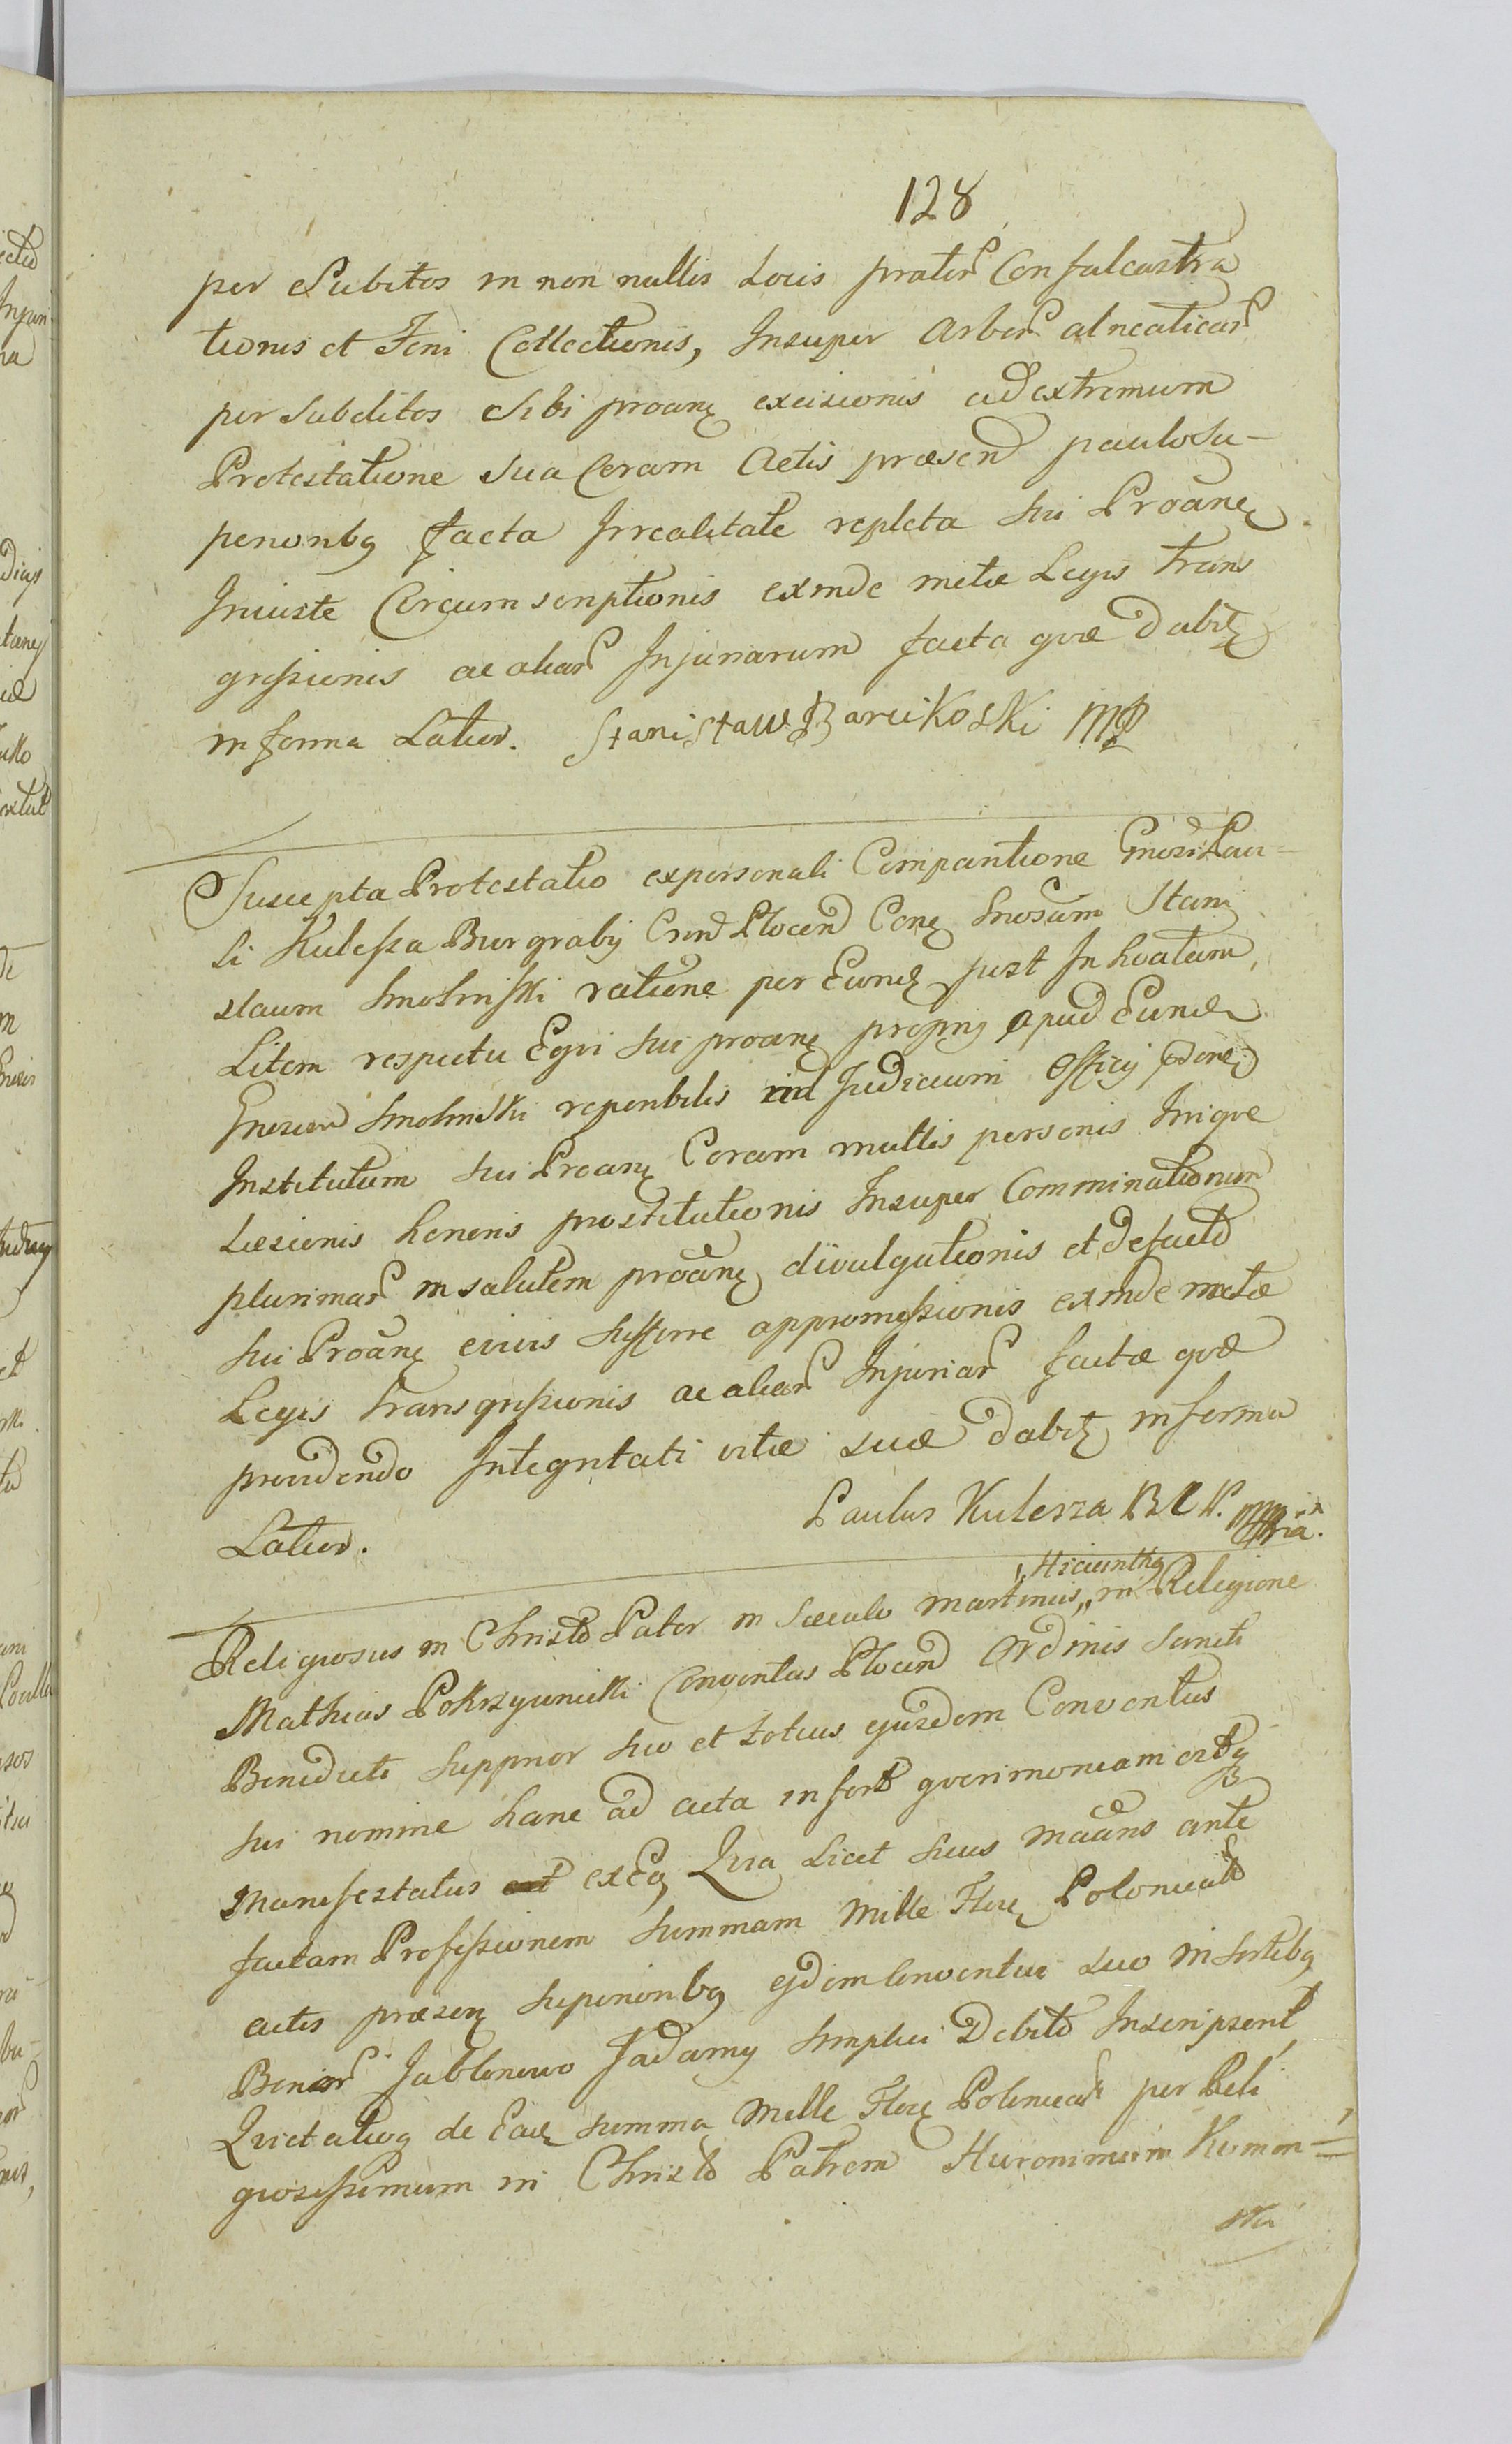 128
per Subitos in non nullis Locis prator Confalcastra
tionis et Feni Collectionis, Insuper Arbor alneaticar
per Subditos Sibi proane excisionis ad extremum
Protestatione sua Coram Actis præsend paulo Su-
perioribq facta Irrealitate repleta sui Proane
Iniuste Circumscriptionis exinde metæ Legis Trans
greszionis ac aliar Injuriarum facta quæ dabit
in forma Latior. Stanisław Barcikoski MP
Suscepta Protestatio ex personali Comparitione Gnosi Pau-
li Kulesza Burgrabij Crnd Plocend Conę Gnosum Stani
slaum Smolinski ratione per Eund just Inhoatam
Litem respectu Equi sui proane proprij apud Eund
Gnosum Smolinski reperibilis in Judicium Officij
Institutum sui Proane Coram multis personis Inique
Læzionis honoris prostitutionis Insuper Comminationum
plurimar in salutem proane divulgationis et de facto
sui Proane eiuis appromiszionis exinde metæ
Legis transgriszionis ac aliar Injuriar factæ quæ
providendo Integritati vitæ suæ dabit in forma
Latior.
Paulus Kulesza B C P. mppria.
Hiacinthq
Religiosus in Christo Pater in Sæculo Martinus,, in Religione
Mathias Pokrzywnicki Conventus Plocend Ordinis Sancti
Benedicti Supprior suo et totius ejusdem Conventus
sui nomine hanc ad acta infert querimoniam estq
Manifestatus ex eq Quia Licet suus Maans ante
factam Profeszionem Summam Mille Flor Polonicalo
actis præsen superioribq ejdem Conventui suo in Sortibq
Bonor Jablonowo Jadamy Simplici Debito Inscripserit
Quietatusq de Ead summa Mille Flor Polonical per Reli
giosiszimum in Christo Patrem Hieronimum Komor-
ski